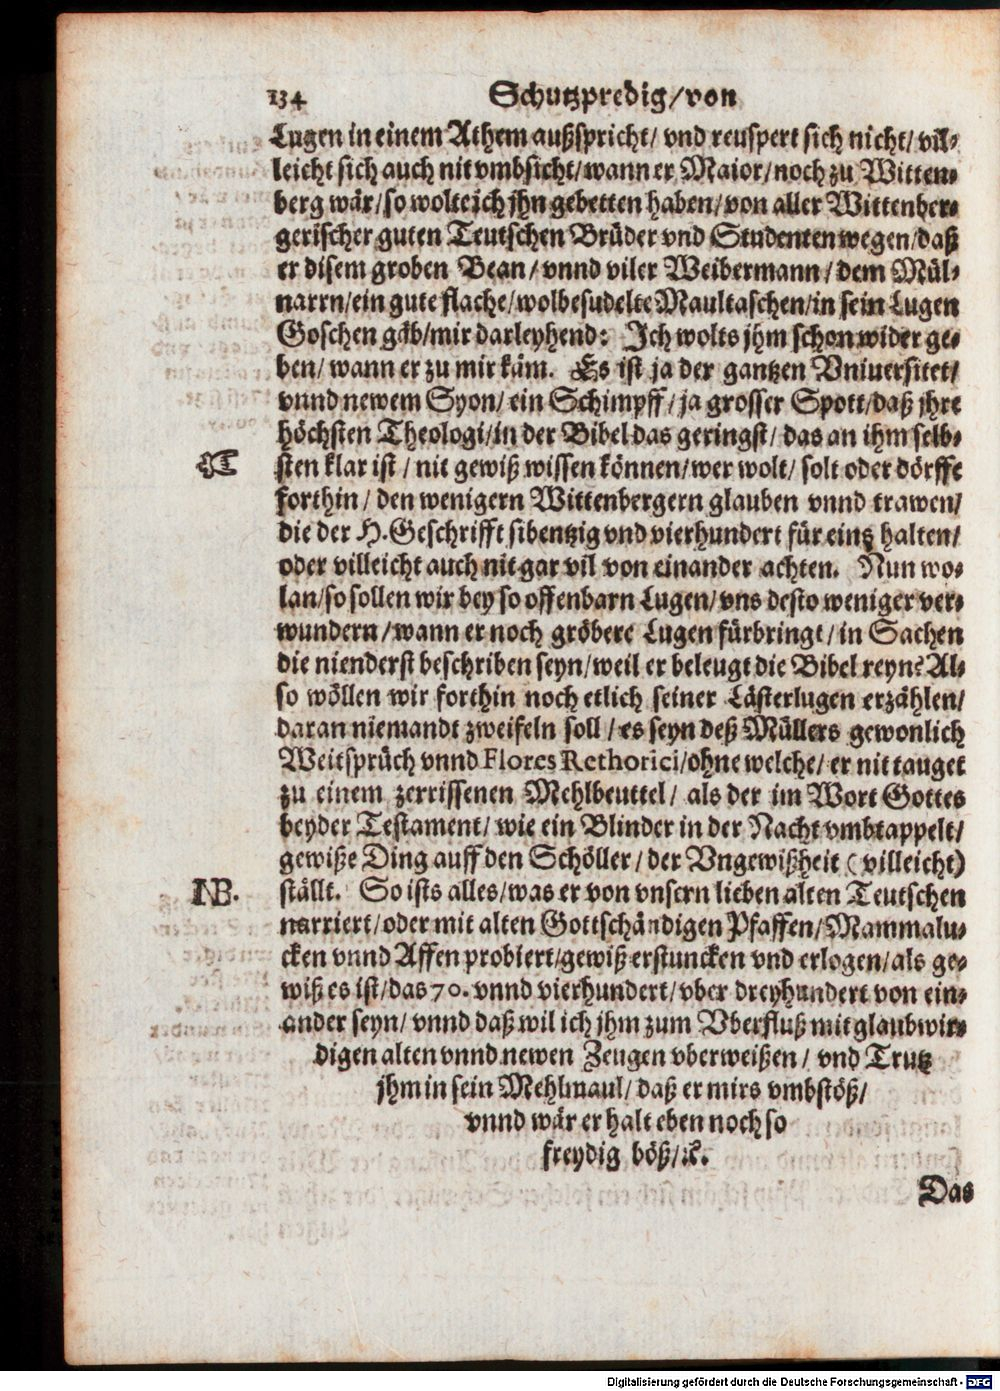 134 Schutzpredig/von
Lugen in einem Athem außspricht/ vnd reuspert sich nicht/ vil-
leicht sich auch nit vmbsicht/wann er Maior/noch zu Witten-
berg wär/so wolte ich jhn gebetten haben/von aller Wittenber-
gerischer guten Teutschen Brüder vnd Studenten wegen/daß
er disem groben Bean/ vnnd viler Weibermann/ dem Mül-
narrn/ein gute flache/wolbesudelte Maultaschen/in sein Lugen
Goschen gäb/mir darleyhend: Ich wolts jhm schon wider ge-
ben/ wann er zu mir käm. Es ist ja der gantzen Vniuersitet/
vnnd newem Syon/ ein Schimpff/ ja grosser Spott/daß jhre
höchsten Theologi/in der Bibel das geringst/ das an ihm selb-
sten klar ist/ nit gewiß wissen können/wer wolt/ solt oder dörffe
forthin/ den wenigern Wittenbergern glauben vnnd trawen/
die der H. Geschrifft sibentzig vnd vierhundert für eins halten/
oder villeicht auch nit gar vil von einander achten. Nun wo-
lan/so sollen wir bey so offenbarn Lugen/ vns desto weniger ver-
wundern/wann er noch gröbere Lugen fürbringt/ in Sachen
die nienderst beschriben seyn/weil er beleugt die Bibel reyn? Al-
so wöllen wir forthin noch etlich seiner Lästerlugen erzählen/
daran niemandt zweifeln soll/ es seyn deß Müllers gewonlich
Weitsprüch vnnd Flores Rethorici/ohne welche/ er nit tauget
zu einem zerrissenen Mehlbeuttel/ als der im Wort Gottes
beyder Testament/ wie ein Blinder in der Nacht vmbtappelt/
gewiße Ding auff den Schöller/ der Vngewißheit (villeicht)
NB. ställt. So ists alles/was er von vnsern lieben alten Teutschen
narriert/oder mit alten Gottschändigen Pfaffen/Mammalu-
cken vnnd Affen probiert/gewiß erstuncken vnd erlogen/als ge-
wiß es ist/das 70. vnnd vierhundert/ vber dreyhundert von ein-
ander seyn/ vnnd daß wil ich jhm zum Vberfluß mit glaubwir-
digen alten vnnd newen Zeugen vberweißen/ vnd Trutz
jhm in sein Mehlmaul/ daß er mirs vmbstöß/
vnnd wär er halt eben noch so
freydig böß/ꝛc.
Das
Digitalisierung gefördert durch die Deutsche Forschungsgemeinschaft - DFG